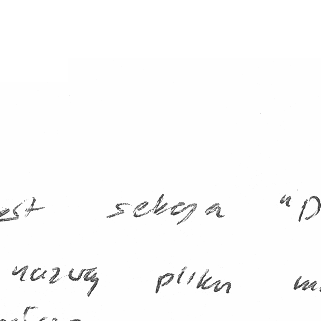 est sekcja "D
nazwą pliku